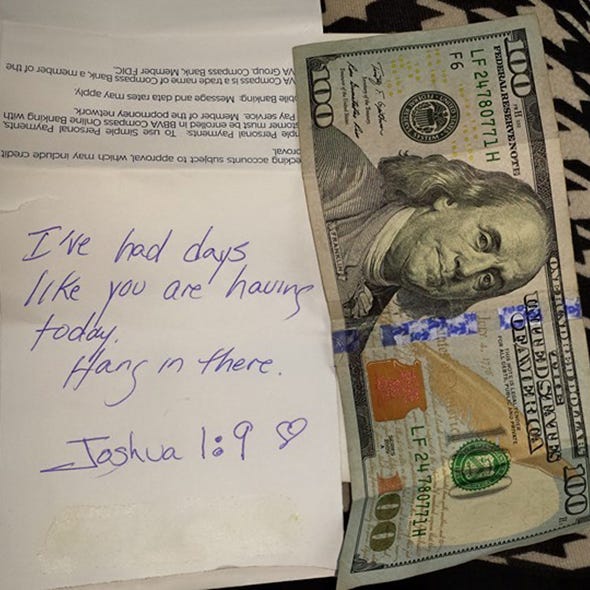 I've had days
like you are having
today.
Hang in there.
Joshua 1:9
ecking accounts subject to approval, which may include credit
roval.
mple Personal Payments. To use Simple Personal Payments,
stomer must be enrolled in BBVA Compass Online Banking with
Pay service. Member of the popmoney network.
obile Banking. Message and data rates may apply.
VA Compass is a trade name of Compass Bank, a member of the
VA Group. Compass Bank, Member FDIC.
100
FEDERAL RESERVE NOTE
LF24780771H
F6
100
FRANKLIN
THE UNITED STATES
OF AMERICA
THIS NOTE IS LEGAL TENDER
FOR ALL DEBTS, PUBLIC AND PRIVATE
LF24780771H
ONE HUNDRED DOLLARS
100
100